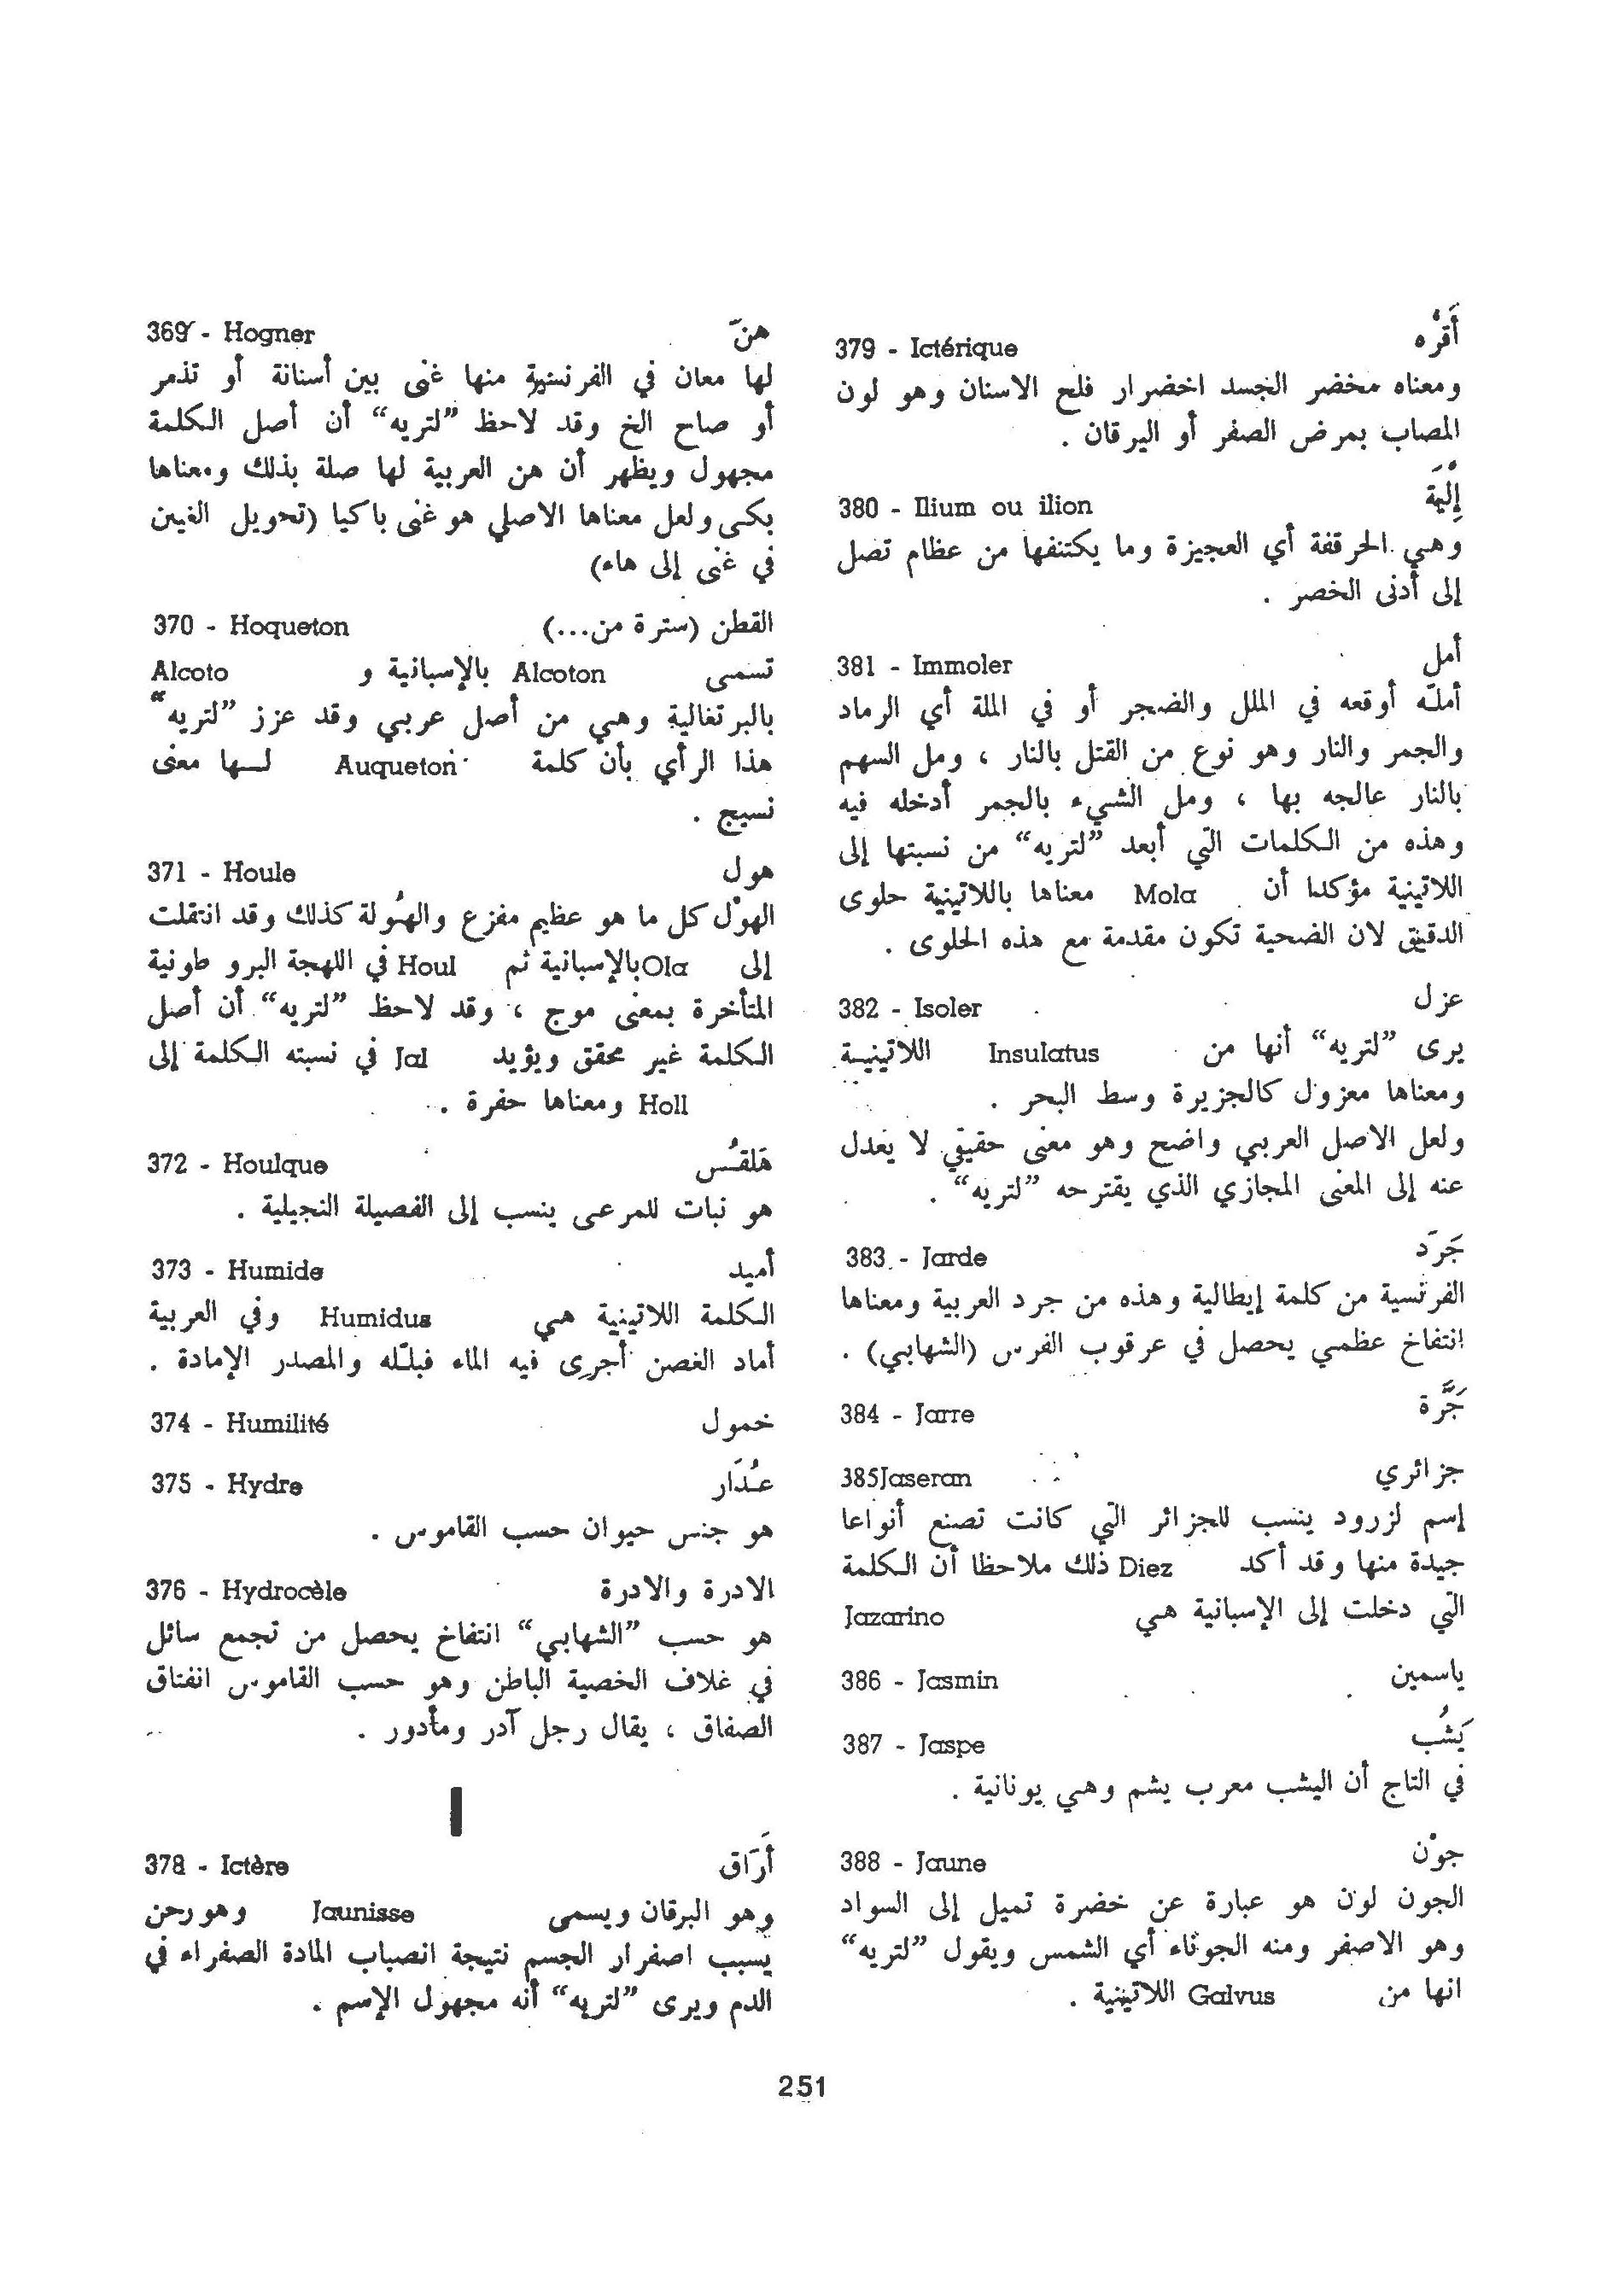 369 - Hogner هنّ
لها معان في الفرنسية منها غنى بين أسنانة أو تذمر
أو صاح الخ وقد لاحظ ”لتريه“ أن أصل الكلمة
مجهول ويظهر أن هن العربية لها صلة بذلك ومعناها
بكى ولعل معناها الاصلي هو غنى باكيا (تحويل الغين
في غنى إلى هاء)
370 - Hoqueton القطن (سترة من...)
تسمى Alcoton بالإسبانية و Alcoto
بالبرتغالية وهي من أصل عربي وقد عزز ”لتريه“
هذا الرأي بأن كلمة Auqueton لـها معنى
نسيج .
371 - Houle هول
الهوْل كل ما هو عظيم مفزع والهُولة كذلك وقد انتقلت
إلى Ola بالإسبانية ثم Houl في اللهجة البرو طونية
المتأخرة بمعنى موج ، وقد لاحظ ”لتريه“ أن أصل
الكلمة غير محقق ويؤيد Jal في نسبته الكلمة إلى
Holl ومعناها حفرة .
372 - Houlque هَلقُس
هو نبات للمرعى ينسب إلى الفصيلة النجيلية .
373 - Humide أميد
الكلمة اللاتينية هي Humidus وفي العربية
أماد الغصن أجرى فيه الماء فبلّله والمصدر الإمادة .
374 - Humilité خمول
375 - Hydre عُدَار
هو جنس حيوان حسب القاموس .
376 - Hydrocèle الادرة والادرة
هو حسب ”الشهابي“ انتفاخ يحصل من تجمع سائل
في غلاف الخصية الباطن وهو حسب القاموس انفتاق
الصفاق ، يقال رجل آدر ومأدور .
I
378 - Ictère أَرَاق
وهو اليرقان ويسمى Jaunisse وهو رحن
يسبب اصفرار الجسم نتيجة انصباب المادة الصفراء في
الدم ويرى ”لتريه“ أنه مجهول الإسم .
379 - Ictérique أَقرْه
ومعناه مخضر الجسد اخضرار فلح الاسنان وهو لون
المصاب بمرض الصفر أو اليرقان .
380 - Ilium ou ilion إِلْيَة
وهي الحرقفة أي العجيزة وما يكتنفها من عظام تصل
إلى أدنى الخصر .
381 - Immoler أمل
أملّه أوقعه في الملل والضجر أو في الملة أي الرماد
والجمر والنار وهو نوع من القتل بالنار ، ومل السهم
بالنار عالجه بها ، ومل الشيء بالجمر أدخله فيه
وهذه من الكلمات التي أبعد ”لتريه“ من نسبتها إلى
اللاتينية مؤكدا أن Mola معناها باللاتينية حلوى
الدقيق لان الضحية تكون مقدمة مع هذه الحلوى .
382 - Isoler عزل
يرى ”لتريه“ أنها من Insulatus اللاتينيـة
ومعناها معزول كالجزيرة وسط البحر .
ولعل الاصل العربي واضح وهو معنى حقيقي لا يعدل
عنه إلى المعنى المجازي الذي يقترحه ”لتريه“ .
383 - Jarde جَرَد
الفرنسية من كلمة إيطالية وهذه من جرد العربية ومعناها
انتفاخ عظمي يحصل في عرقوب الفرس (الشهابي) .
384 - Jarre جَرَّة
385Jaseran جزائري
إسم لزرود ينسب للجزائر التي كانت تصنع أنواعا
جيدة منها وقد أكد Diez ذلك ملاحظا أن الكلمة
التي دخلت إلى الإسبانية هي Jazarino
386 - Jasmin ياسمين
387 - Jaspe يَشُب
في التاج أن اليشب معرب يشم وهي يونانية .
388 - Jaune جوْن
الجون لون هو عبارة عن خضرة تميل إلى السواد
وهو الاصفر ومنه الجوناء أي الشمس ويقول ”لتريه“
انها من Galvus اللاتينية .
251